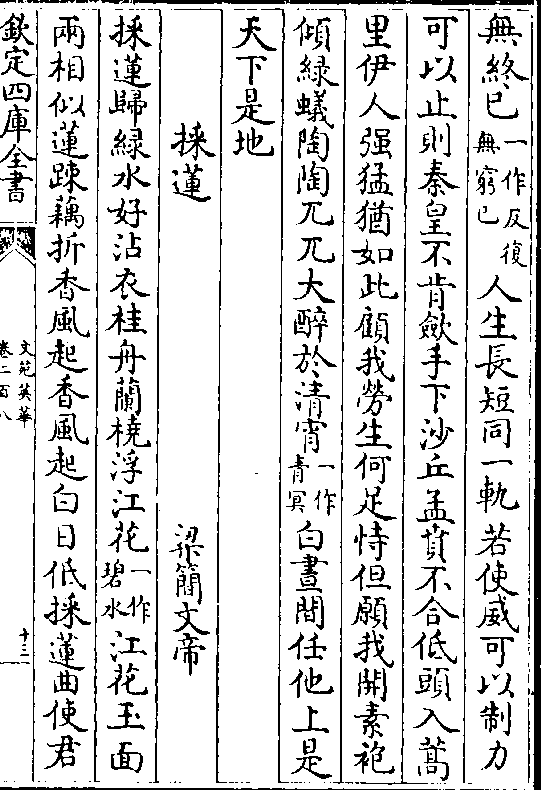 無終已一作反復無窮已人生長短同一軌若使威可以制力
可以止則秦皇不肯斂手下沙丘孟賁不合低頭入蒿
里伊人强猛猶如此顧我勞生何足恃但願我開素袍
傾綠蟻陶陶兀兀大醉於清宵一作青冥白晝間任他上是
天下是地
採蓮 梁簡文帝
採蓮歸綠水好沾衣桂舟蘭橈浮江花一作碧水江花玉面
兩相似蓮踈藕折香風起香風起白日低採蓮曲使君
欽定四庫全書
文苑英華
卷二百八
十三